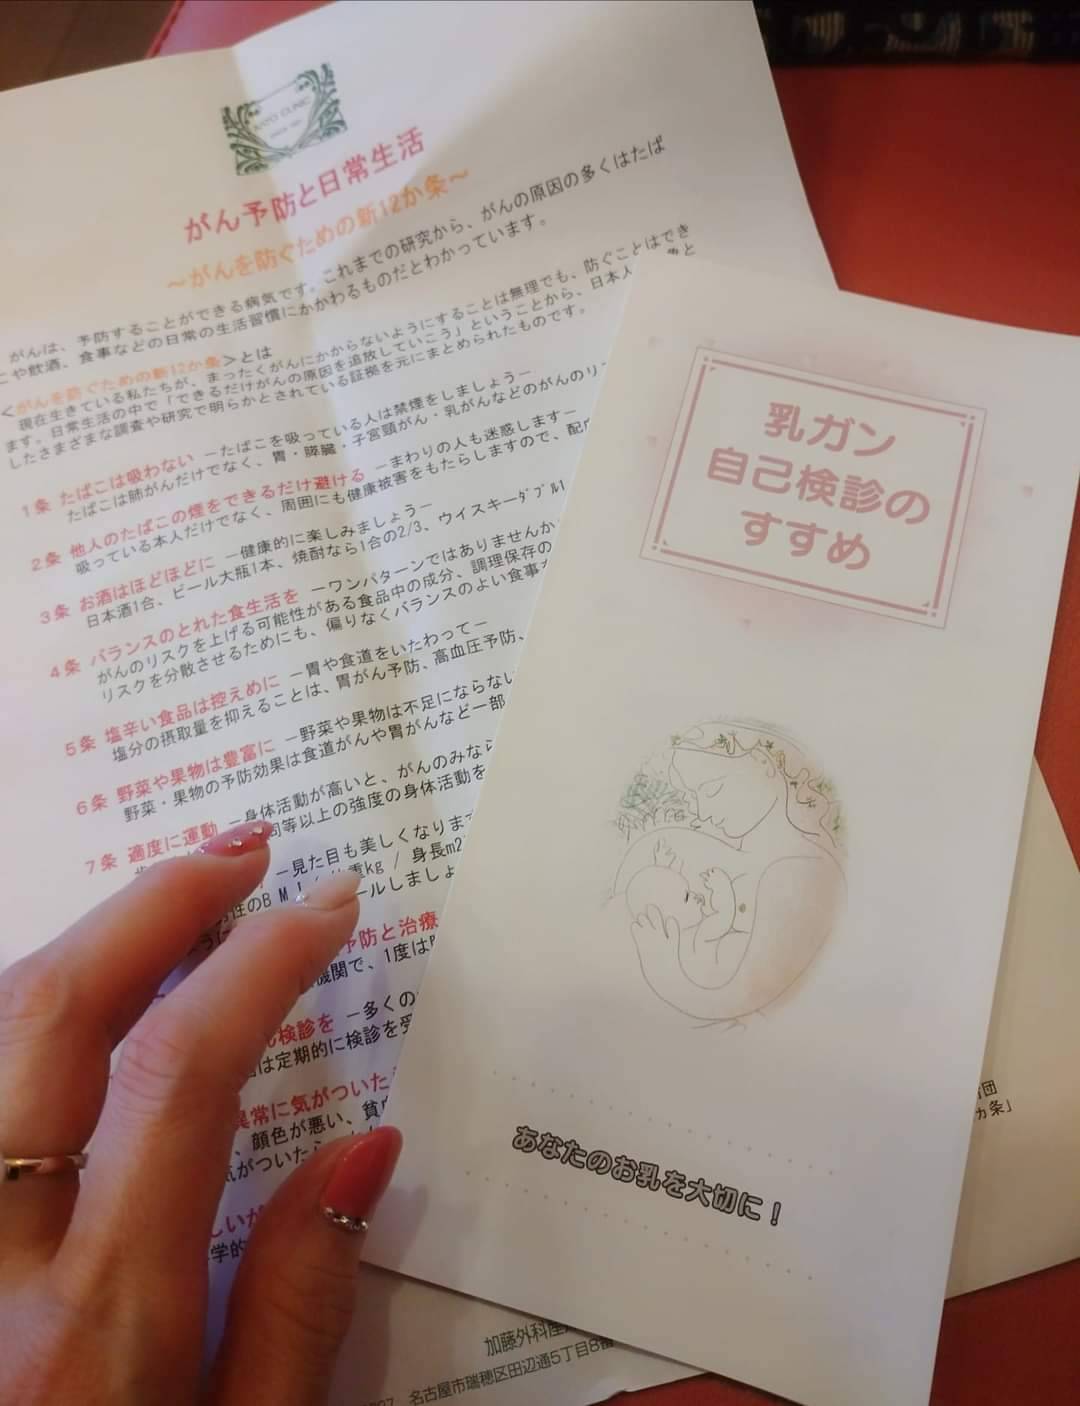 KATO CLINIC
がん予防と日常生活
～がんを防ぐための新12か条～
がんは、予防することができる病気です。これまでの研究から、がんの原因の多くはたば
こや飲酒、食事などの日常の生活習慣にかかわるものだとわかっています。
＜がんを防ぐための新12か条＞とは
現在生きている私たちが、まったくがんにかからないようにすることは無理でも、防ぐことはでき
ます。日常生活の中で「できるだけがんの原因を追放していこう」ということから、日本人
したさまざまな調査や研究で明らかとされている証拠を元にまとめられたものです。
1条 たばこは吸わない －たばこを吸っている人は禁煙をしましょう－
たばこは肺がんだけでなく、胃・膵臓・子宮頸がん・乳がんなどのがんのリス
2条 他人のたばこの煙をできるだけ避ける －まわりの人も迷惑します－
吸っている本人だけでなく、周囲にも健康被害をもたらしますので、配
3条 お酒はほどほどに －健康的に楽しみましょう－
日本酒1合、ビール大瓶1本、焼酎なら1合の2/3、ウイスキーダブル1
4条 バランスのとれた食生活を －ワンパターンではありませんか
がんのリスクを上げる可能性がある食品中の成分、調理保存の
リスクを分散させるためにも、偏りなくバランスのよい食事
5条 塩辛い食品は控えめに －胃や食道をいたわって－
塩分の摂取量を抑えることは、胃がん予防、高血圧予防、
6条 野菜や果物は豊富に －野菜や果物は不足にならない
野菜・果物の予防効果は食道がんや胃がんなど一部
7条 適度に運動 －身体活動が高いと、がんのみなら
同等以上の強度の身体活動を
－見た目も美しくなります
性のBMI 体重kg / 身長m2
ールしましょ
予防と治療
機関で、1度は
ん検診を －多くの
は定期的に検診を受
異常に気がついた
、顔色が悪い、貧
気がついたら
しいが
学的
団
カ条」
加藤外科産
名古屋市瑞穂区田辺通5丁目8番
乳ガン
自己検診の
すすめ
あなたのお乳を大切に！